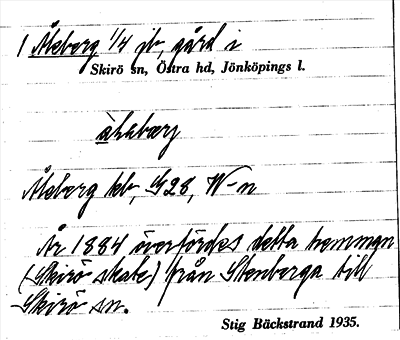 1 Åleberg 1/4 jb, gård i
Skirö sn, Östra hd, Jönköpings l.
Åleberg
År 1884 överfördes detta hemman
(Skirö skate) från Stenberga till
Skirö sn.
Stig Bäckstrand 1935.